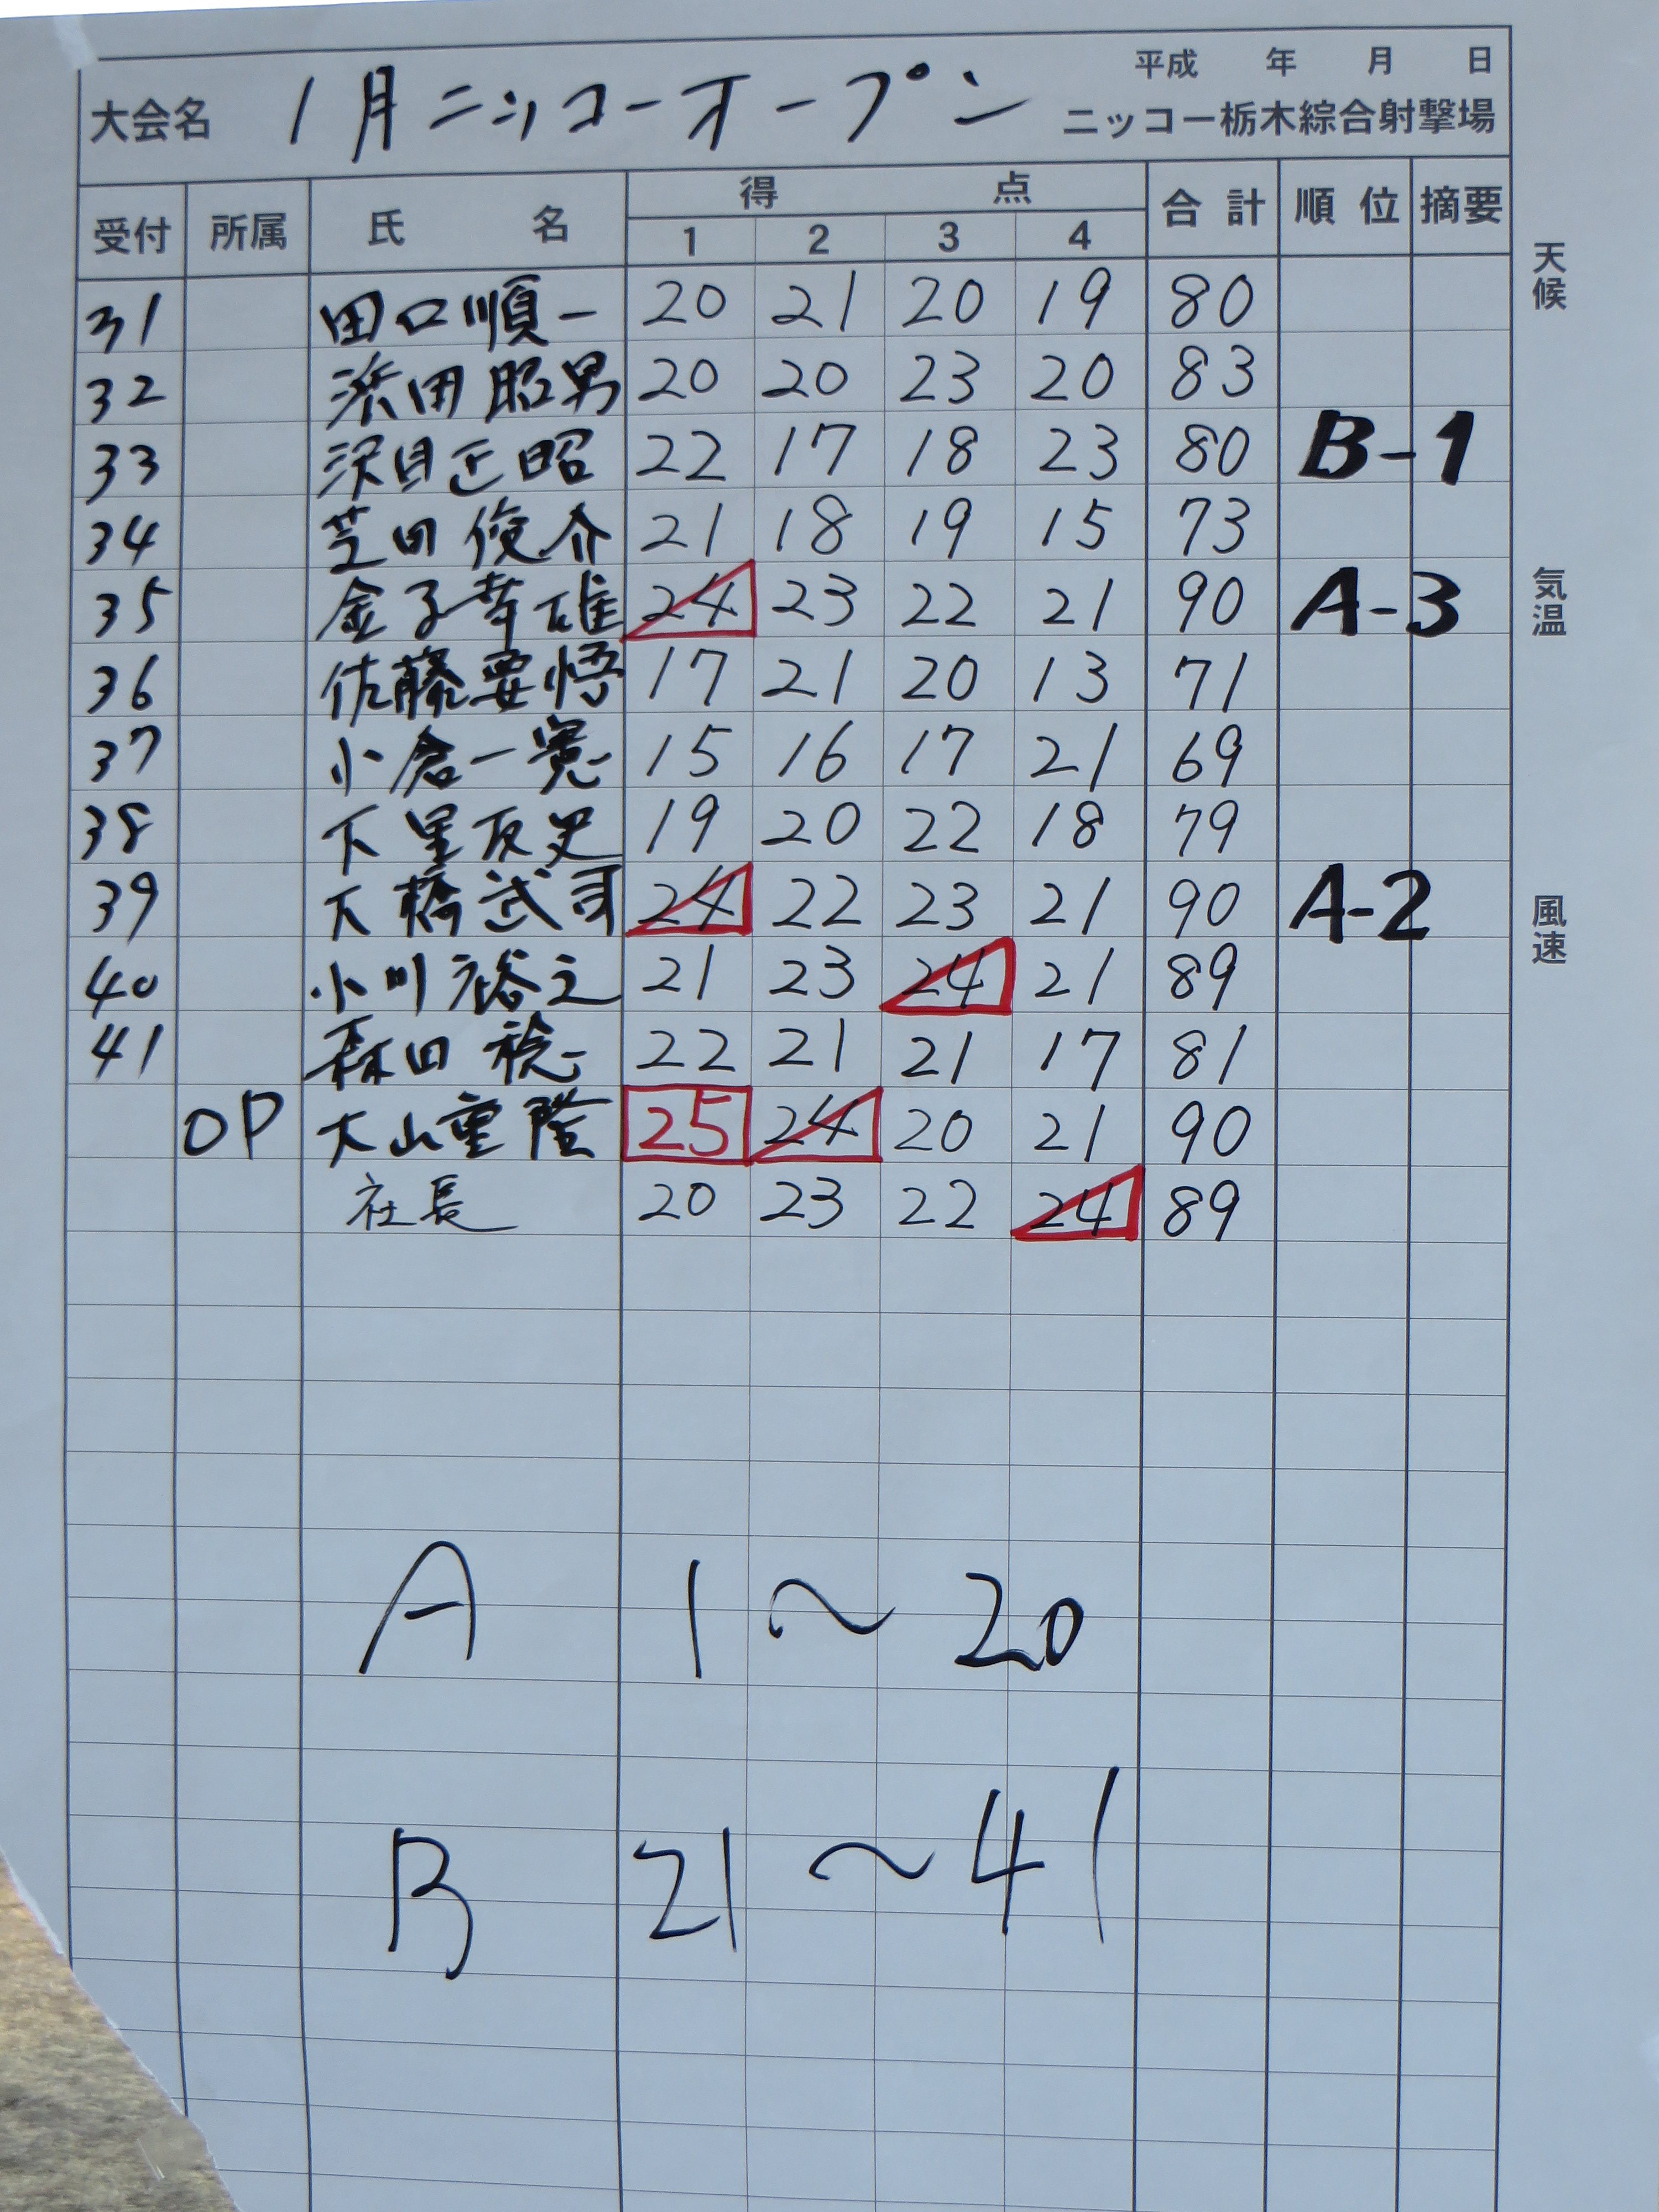 平成 年 月 日
大会名 1月ニッコーオープン ニッコー栃木綜合射撃場
受付 所属 氏 名 得 点 合計 順位 摘要
1 2 3 4
31 田口順一 20 21 20 19 80
32 浜田昭男 20 20 23 20 83
33 沢目正昭 22 17 18 23 80 B-1
34 芝田俊介 21 18 19 15 73
35 金子幸雄 24 23 22 21 90 A-3
36 佐藤要悟 17 21 20 13 71
37 小倉一寛 15 16 17 21 69
38 19 20 22 18 79
39 大橋武司 24 22 23 21 90 A-2
40 小川裕之 21 23 24 21 89
41 森田 22 21 21 17 81
OP 大山重隆 25 24 20 21 90
社長 20 23 22 24 89
A 1〜20
B 21〜41
天候
気温
風速